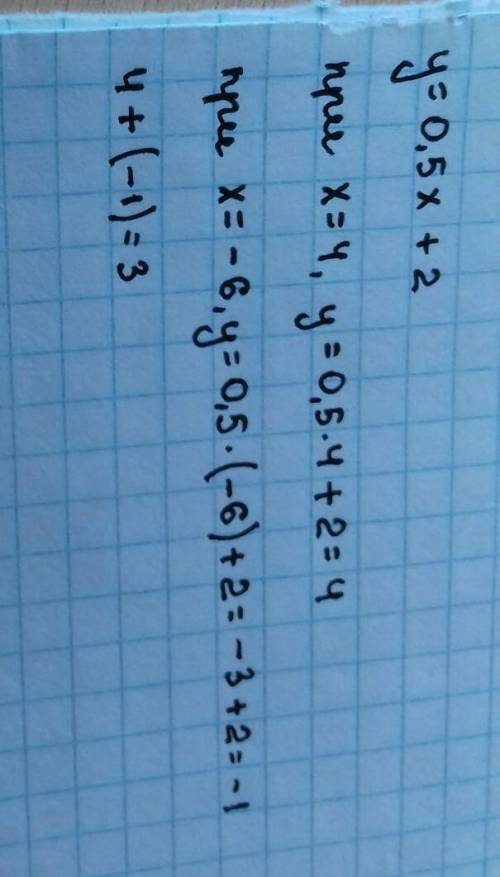 y = 0,5x + 2
при x = 4, y = 0,5·4 + 2 = 4
при x = -6, y = 0,5·(-6) + 2 = -3 + 2 = -1
4 + (-1) = 3